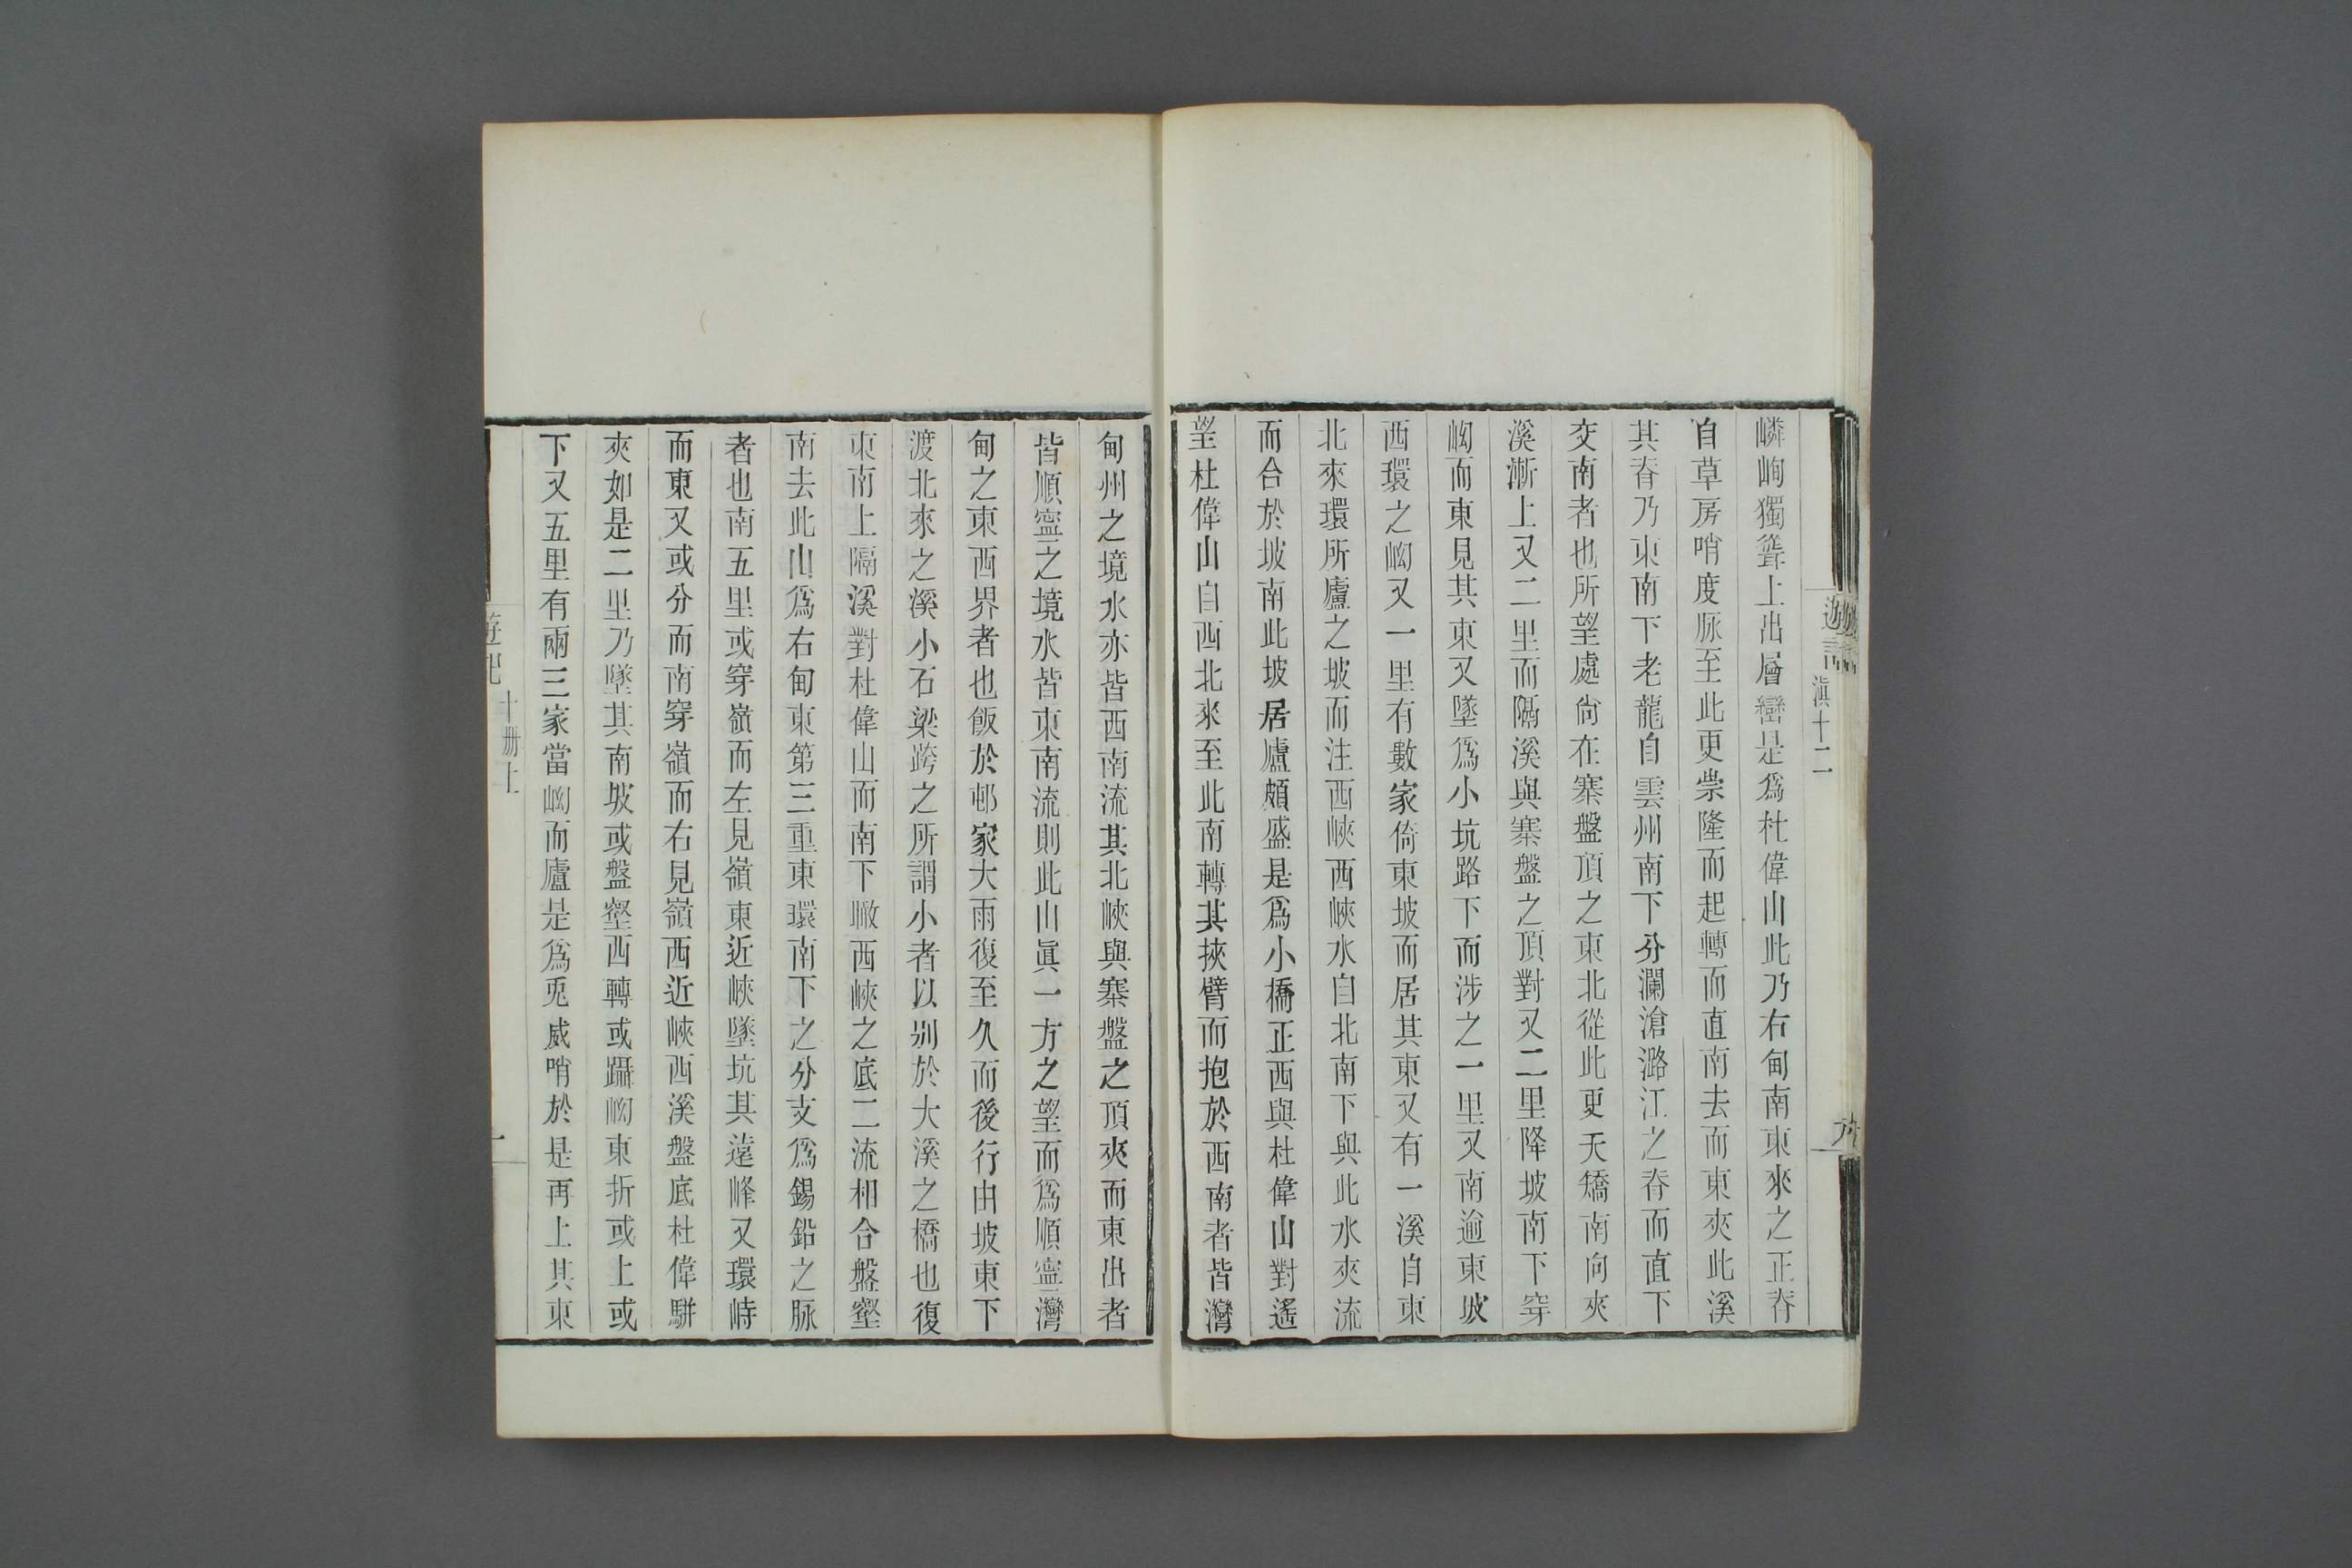 遊記
滇十二
六
嶙峋獨聳上出層巒是爲杜偉山此乃右甸南東來之正脊
自草房哨度脉至此更崇隆而起轉而直南去而東夾此溪
其脊乃東南下老龍自雲州南下分瀾滄潞江之脊而直下
交南者也所望處尙在寨盤頂之東北從此更夭矯南向夾
溪漸上又二里而隔溪與寨盤之頂對又二里降坡南下穿
峝而東見其東又墜爲小坑路下而涉之一里又南逾東坡
西環之峝又一里有數家倚東坡而居其東又有一溪自東
北來環所廬之坡而注西峽西峽水自北南下與此水夾流
而合於坡南此坡居廬頗盛是爲小橋正西與杜偉山對遙
望杜偉山自西北來至此南轉其挾臂而抱於西南者皆灣
甸州之境水亦皆西南流其北峽與寨盤之頂夾而東出者
皆順寧之境水皆東南流則此山眞一方之望而爲順寧灣
甸之東西界者也飯於邨家大雨復至久而後行由坡東下
渡北來之溪小石梁跨之所謂小者以别於大溪之橋也復
東南上隔溪對杜偉山而南下瞰西峽之底二流相合盤壑
南去此山爲右甸東第三重東環南下之分支爲錫鉛之脉
者也南五里或穿嶺而左見嶺東近峽墜坑其遠峰又環峙
而東又或分而南穿嶺而右見嶺西近峽西溪盤底杜偉騈
夾如是二里乃墜其南坡或盤壑西轉或躡峝東折或上或
下又五里有兩三家當峝而廬是爲兎威哨於是再上其東
遊記
十册上